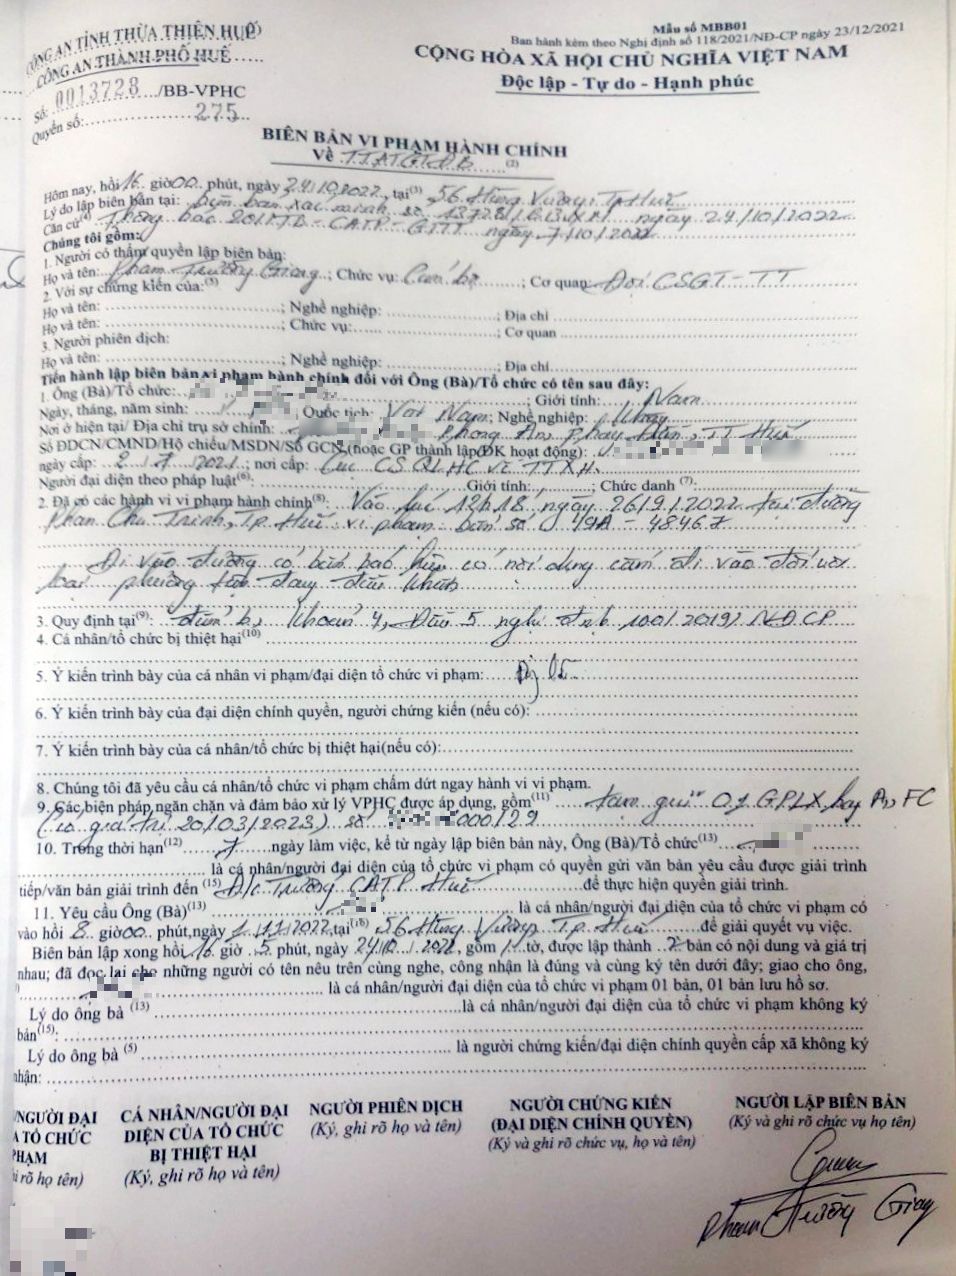 CÔNG AN TỈNH THỪA THIÊN HUẾ
CÔNG AN THÀNH PHỐ HUẾ
Số: 0013728 /BB-VPHC
Quyển số: 275
Mẫu số MBB01
Ban hành kèm theo Nghị định số 118/2021/NĐ-CP ngày 23/12/2021
CỘNG HÒA XÃ HỘI CHỦ NGHĨA VIỆT NAM
Độc lập - Tự do - Hạnh phúc
BIÊN BẢN VI PHẠM HÀNH CHÍNH
Về TTATGTĐB (2)
Hôm nay, hồi 16 giờ 00 phút, ngày 24/10/2022, tại (3) 56 Hùng Vương, Tp Huế
Lý do lập biên bản tại: biên bản xác minh số 13728/BBXM ngày 24/10/2022
Căn cứ (4) Thông báo 201/TB-CATP-GTTT ngày 7/10/2022
Chúng tôi gồm:
1. Người có thẩm quyền lập biên bản:
Họ và tên: Phạm Trường Giang; Chức vụ: Cán bộ; Cơ quan: Đội CSGT-TT
2. Với sự chứng kiến của: (5)
Họ và tên: ; Nghề nghiệp: ; Địa chỉ
Họ và tên: ; Chức vụ: ; Cơ quan
3. Người phiên dịch:
Họ và tên: ; Nghề nghiệp: ; Địa chỉ
Tiến hành lập biên bản vi phạm hành chính đối với Ông (Bà)/Tổ chức có tên sau đây:
1. Ông (Bà)/Tổ chức: ; Giới tính: Nam
Ngày, tháng, năm sinh: ; Quốc tịch: Việt Nam; Nghề nghiệp:
Nơi ở hiện tại/ Địa chỉ trụ sở chính: Phong An, Phong Điền, TT Huế
Số ĐDCN/CMND/Hộ chiếu/MSDN/Số GCN (hoặc GP thành lập/ĐK hoạt động):
ngày cấp: 2/7/2021; nơi cấp: Cục CS QLHC về TTXH.
Người đại diện theo pháp luật (6): Giới tính: ; Chức danh (7):
2. Đã có các hành vi vi phạm hành chính (8): Vào lúc 12h18, ngày 26/9/2022 tại đường
Phan Chu Trinh, Tp. Huế vi phạm biển số 49A - 48467
Đi vào đường có biển báo hiệu có nội dung cấm đi vào đối với
loại phương tiện đang điều khiển
3. Quy định tại (9): điểm b, khoản 4, Điều 5 nghị định 100/2019/NĐCP
4. Cá nhân/tổ chức bị thiệt hại (10)
5. Ý kiến trình bày của cá nhân vi phạm/đại diện tổ chức vi phạm:
6. Ý kiến trình bày của đại diện chính quyền, người chứng kiến (nếu có):
7. Ý kiến trình bày của cá nhân/tổ chức bị thiệt hại(nếu có):
8. Chúng tôi đã yêu cầu cá nhân/tổ chức vi phạm chấm dứt ngay hành vi vi phạm.
9. Các biện pháp ngăn chặn và đảm bảo xử lý VPHC được áp dụng, gồm (11) tạm giữ 01 GPLX hạng FC
(có giá trị 20/03/2023) số 000129
10. Trong thời hạn (12) 7 ngày làm việc, kể từ ngày lập biên bản này, Ông (Bà)/Tổ chức (13)
là cá nhân/người đại diện của tổ chức vi phạm có quyền gửi văn bản yêu cầu được giải trình
tiếp/văn bản giải trình đến (15) Đ/c Trưởng CATP Huế để thực hiện quyền giải trình.
11. Yêu cầu Ông (Bà) (13) là cá nhân/người đại diện của tổ chức vi phạm có
vào hồi 8 giờ 00 phút, ngày 1/11/2022, tại (16) 56 Hùng Vương Tp. Huế để giải quyết vụ việc.
Biên bản lập xong hồi 16 giờ 5 phút, ngày 24/10/2022, gồm 1 tờ, được lập thành 2 bản có nội dung và giá trị
nhau; đã đọc lại cho những người có tên nêu trên cùng nghe, công nhận là đúng và cùng ký tên dưới đây; giao cho ông,
là cá nhân/người đại diện của tổ chức vi phạm 01 bản, 01 bản lưu hồ sơ.
Lý do ông bà (13) là cá nhân/người đại diện của tổ chức vi phạm không ký
bản (15):
Lý do ông bà (5) là người chứng kiến/đại diện chính quyền cấp xã không ký
nhận:
/NGƯỜI ĐẠI
A TỔ CHỨC
PHẠM
hi rõ họ tên)
CÁ NHÂN/NGƯỜI ĐẠI
DIỆN CỦA TỔ CHỨC
BỊ THIỆT HẠI
(Ký, ghi rõ họ và tên)
NGƯỜI PHIÊN DỊCH
(Ký, ghi rõ họ và tên)
NGƯỜI CHỨNG KIẾN
(ĐẠI DIỆN CHÍNH QUYỀN)
(Ký và ghi rõ chức vụ, họ và tên)
NGƯỜI LẬP BIÊN BẢN
(Ký và ghi rõ chức vụ họ và tên)
Phạm Trường Giang